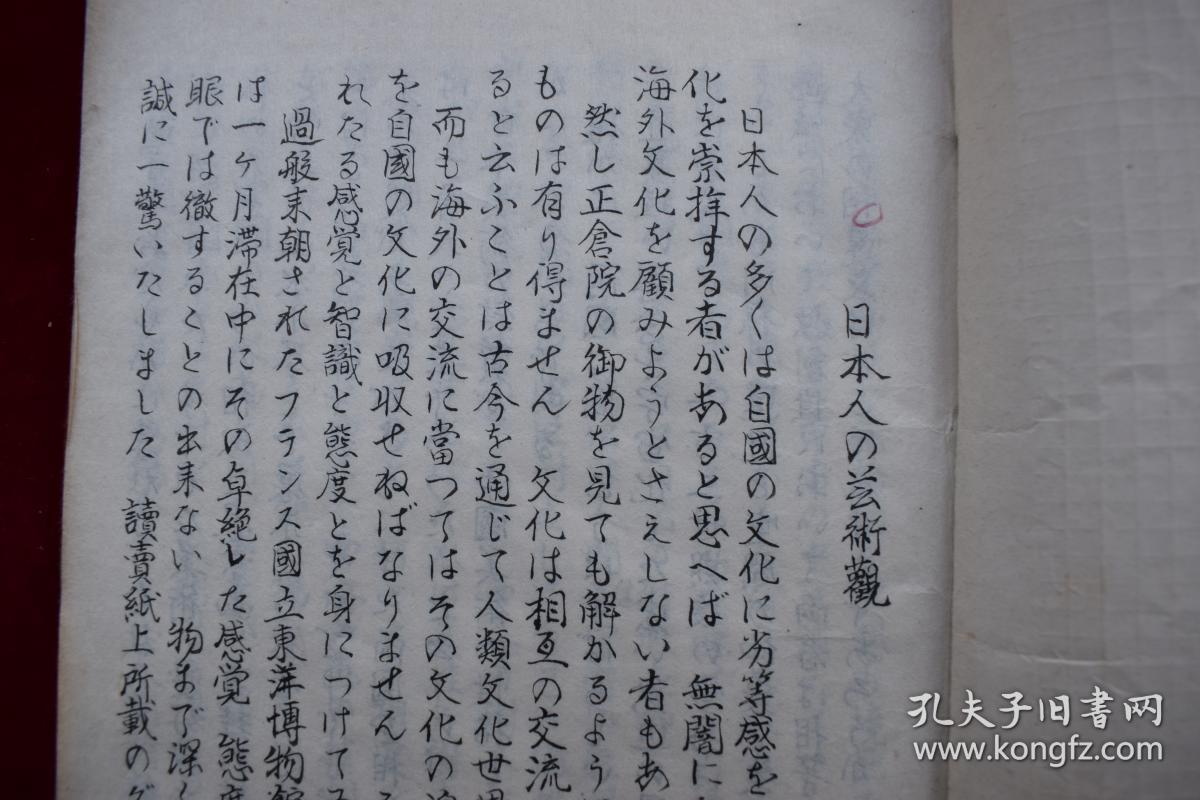 日本人の芸術觀
日本人の多くは自國の文化に劣等感を
化を崇拝する者があると思へば 無闇に
海外文化を顧みようとさえしない者もあ
然し正倉院の御物を見ても解かるよう
ものは有り得ません 文化は相互の交流
ると云ふことは古今を通じて人類文化世
而も海外の交流に當つてはその文化の
を自國の文化に吸収せねばなりません
れたる感覚と智識と態度とを身につけて
過般来朝されたフランス國立東洋博物館
は一ケ月滞在中にその卓絶した感覚 態度
眼では徹することの出来ない 物まで深く
誠に一驚いたしました 讀賣紙上所載の
孔夫子旧书网
www.kongfz.com